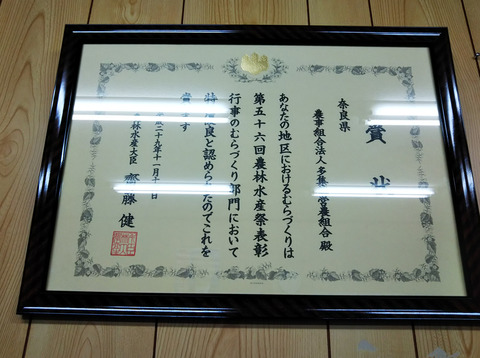 賞状
奈良県
農事組合法人 多 営農組合 殿
あなたの地区におけるむらづくりは
第五十六回農林水産祭表彰
行事のむらづくり部門において
良と認められたのでこれを
す
二十九年十一月十 日
林水産大臣 齋藤 健